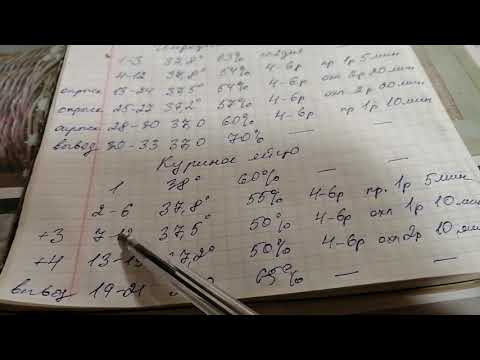 1-3 37,8°
4-12 37,8° 54% 4-6р пр 1р 5 мин
13-24 37,5° 54% 4-6р охл 2р 20 мин
25-27 37,2° 57% 4-6р охл 2р 20 мин
28-30 37,0 60% 4-6р пр 1р 10 мин
вывод 30-33 37,0 70% — —
Куриное яйцо
1 38° 60% — —
2-6 37,8° 55% 4-6р пр. 1р 5 мин
+3 7-12 37,5° 50% 4-6р охл 1р 10 мин
+4 50% 4-6р охл 2р 10 мин
вывод 19-21 65% — —